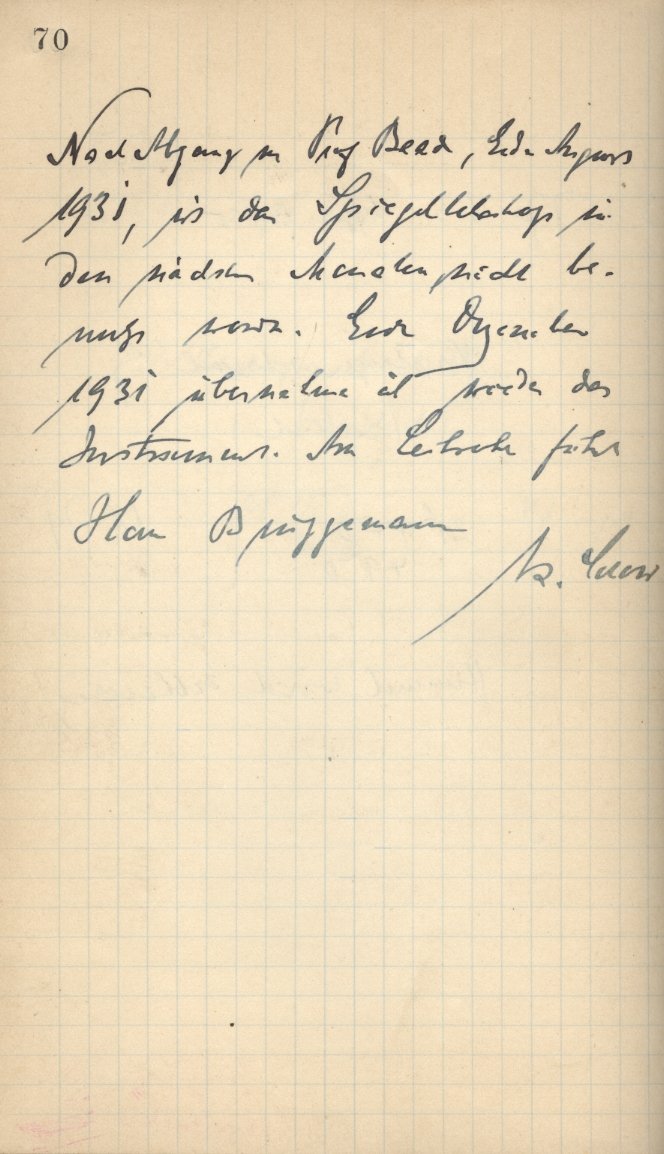 70
Nach Abgang von Prof Baade, Ende August
1931, ist das Spiegelteleskop in
den nächsten Monaten nicht be-
nutzt worden. Ende Dezember
1931 übernahm ich wieder das
Instrument. Am Leitrohr führt
Herr Brüggemann